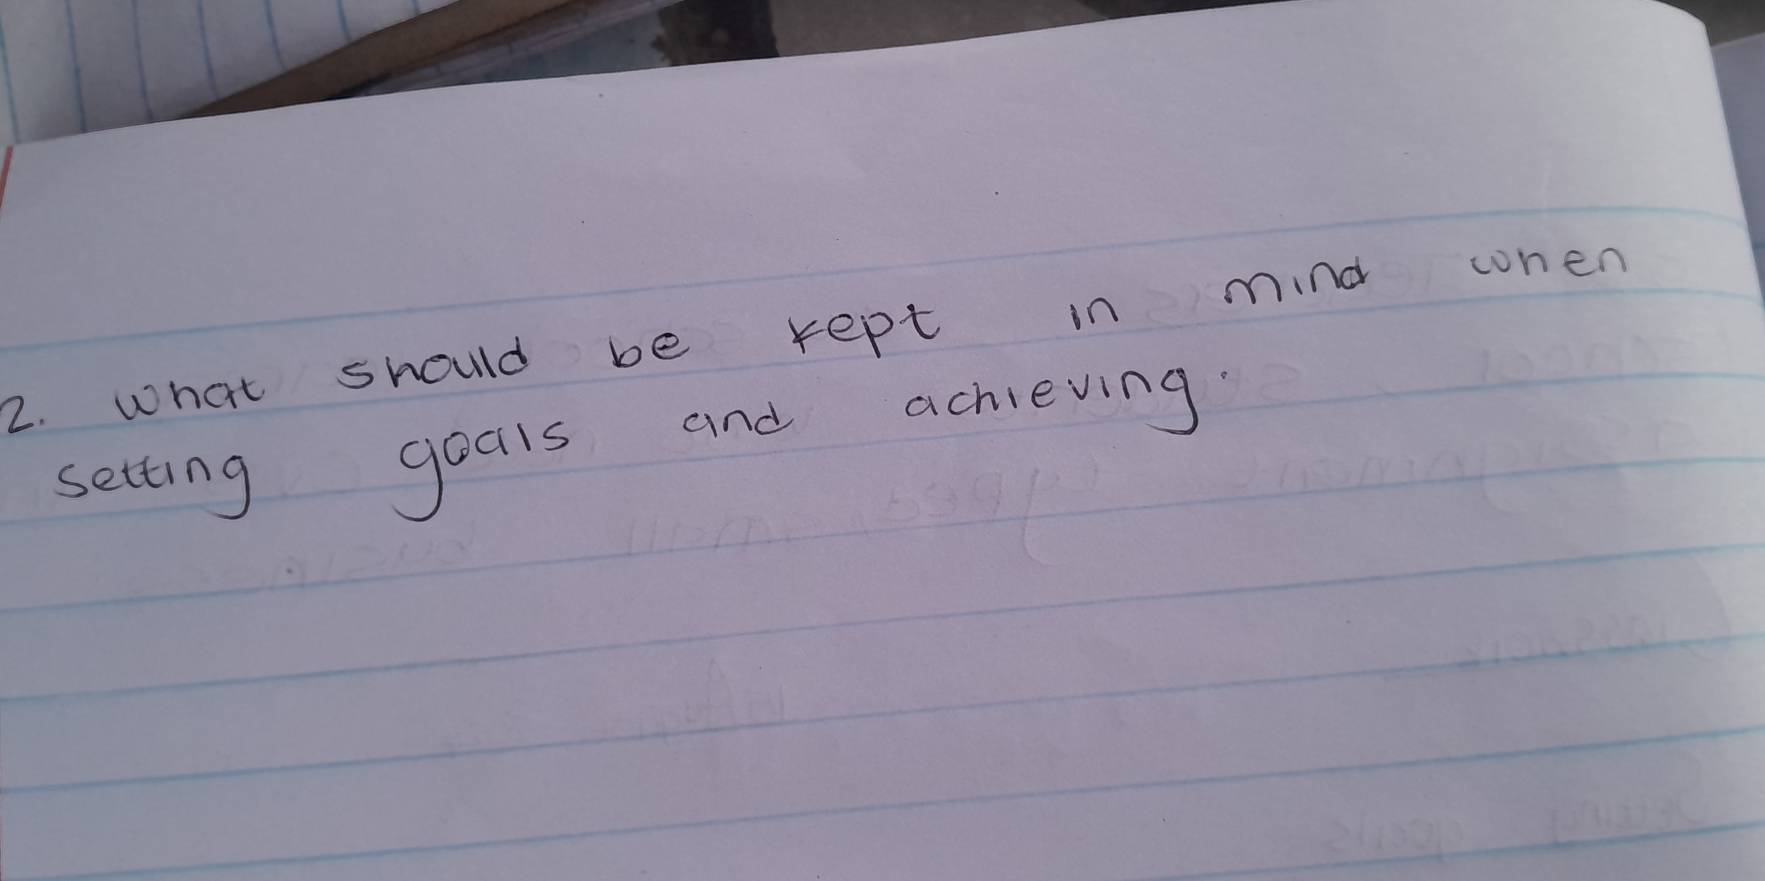 2. What should be kept in mind when
setting goals and achieving.